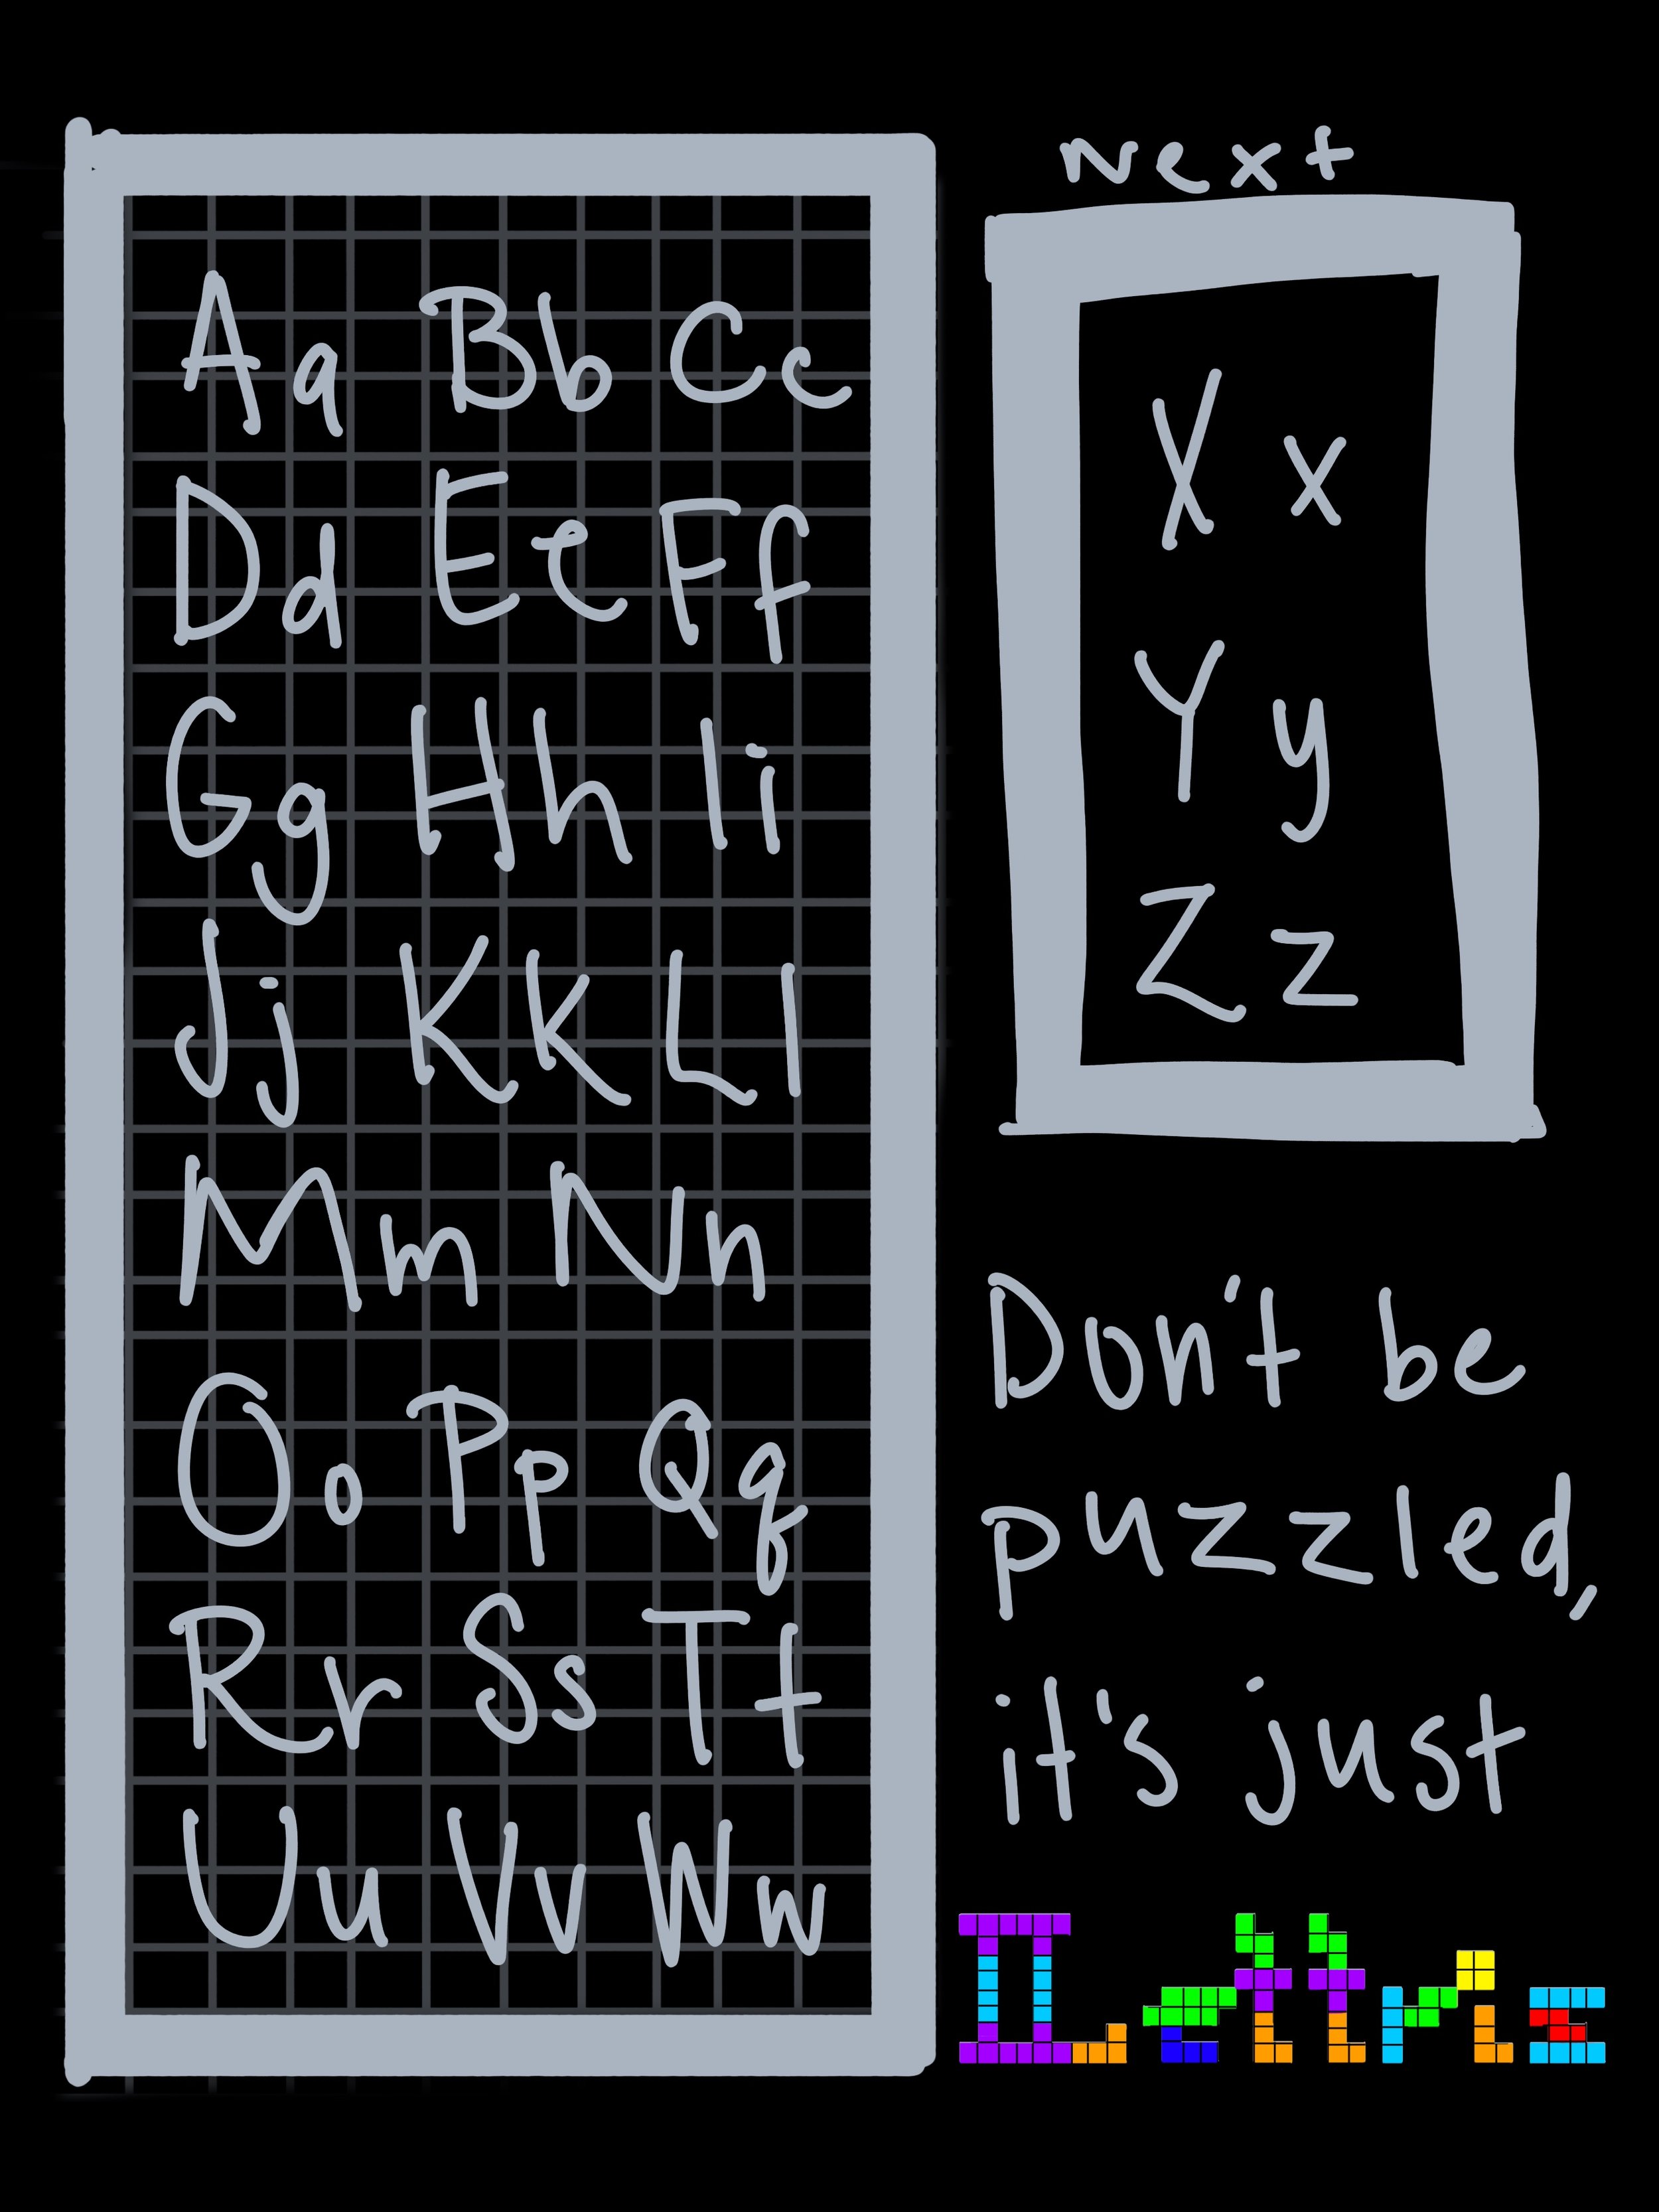 Next
Aa Bb Cc
Dd Ee Ff
Gg Hh Ii
Jj Kk Ll
Mm Nn
Oo Pp Qq
Rr Ss Tt
Uu Vv Ww
Xx
Yy
Zz
Don't be
puzzled,
it's just
Lettris